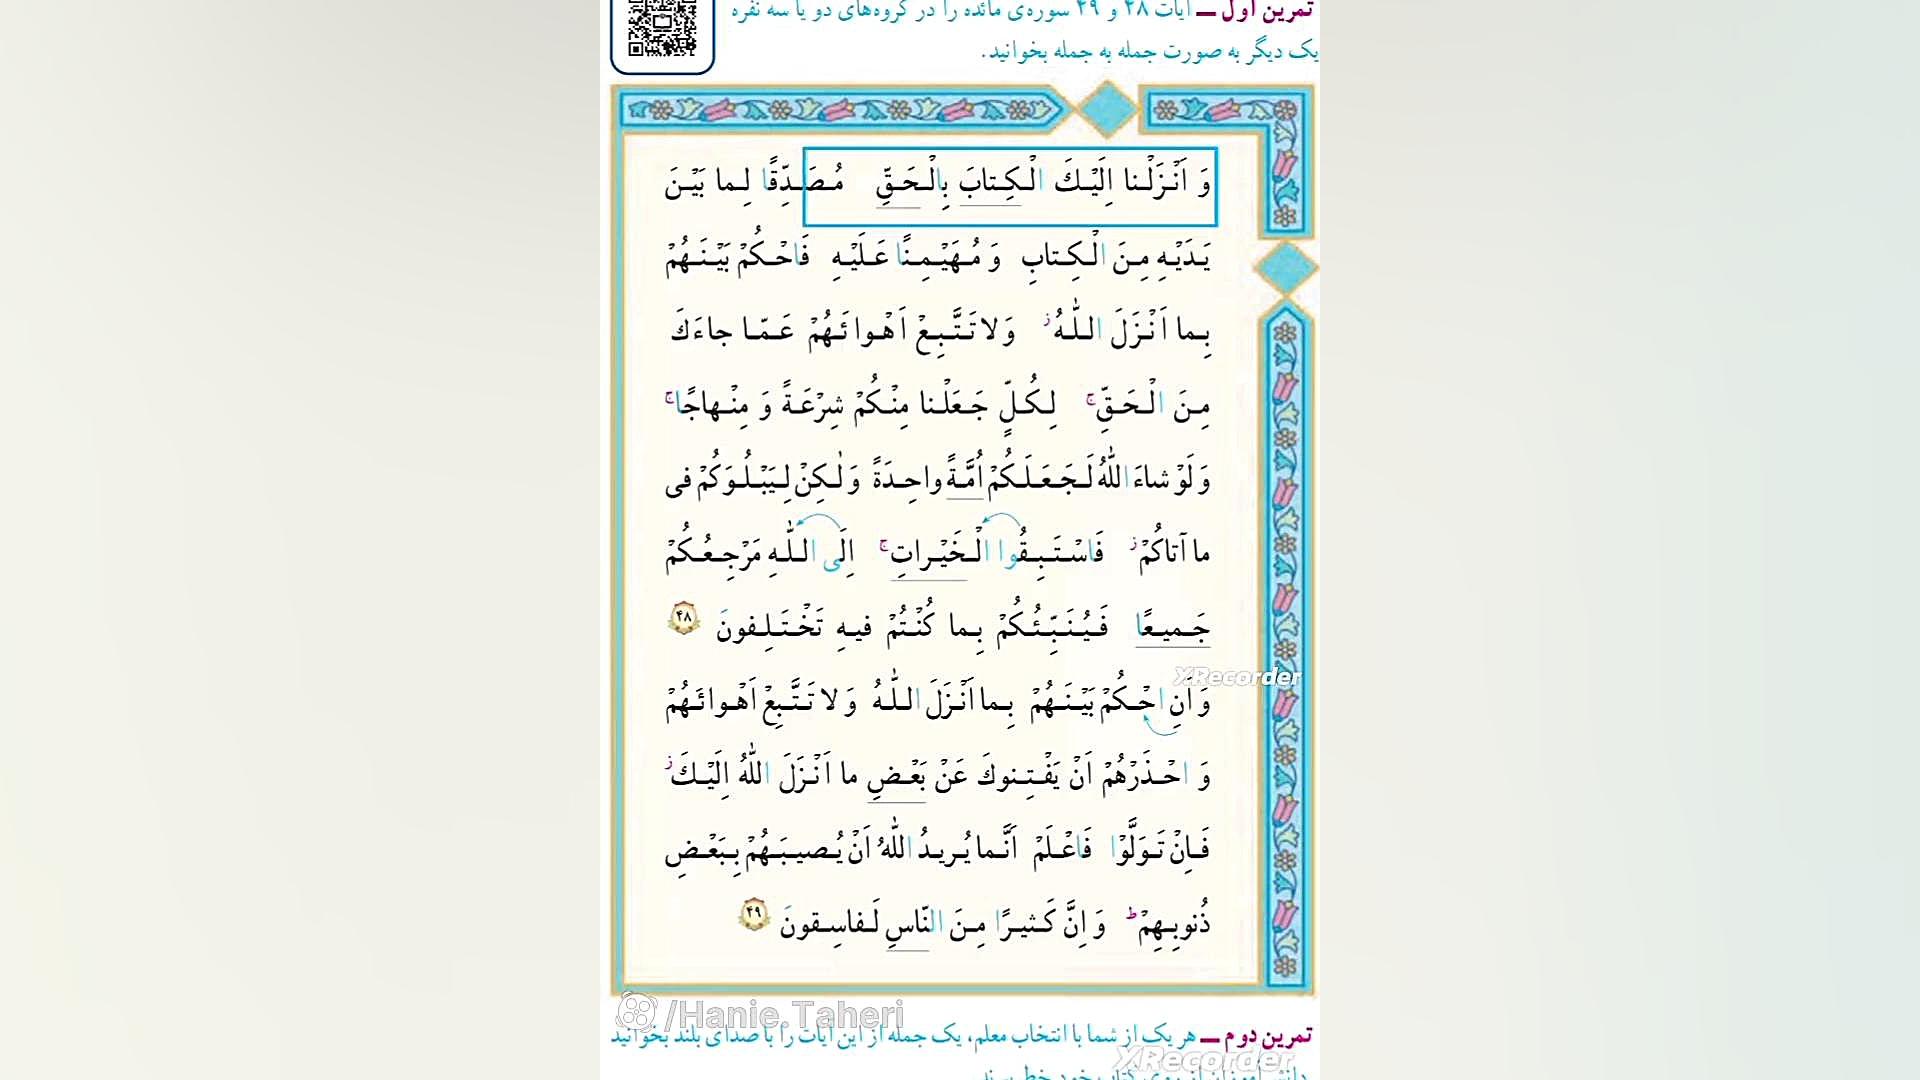 تمرین اول ـ آیات ۴۸ و ۴۹ سوره‌ی مائده را در گروه‌های دو یا سه نفره
یک دیگر به صورت جمله به جمله بخوانید.
وَ اَنْزَلْنا اِلَیْكَ الْكِتابَ بِالْحَقِّ مُصَدِّقًا لِما بَیْنَ
یَدَیْهِ مِنَ الْكِتابِ وَ مُهَیْمِنًا عَلَیْهِ فَاحْكُمْ بَیْنَهُمْ
بِما اَنْزَلَ اللّٰهُ ز وَ لا تَتَّبِعْ اَهْوائَهُمْ عَمّا جاءَكَ
مِنَ الْحَقِّ ج لِكُلٍّ جَعَلْنا مِنْكُمْ شِرْعَةً وَ مِنْهاجًا ج
وَ لَوْ شاءَ اللّٰهُ لَجَعَلَكُمْ اُمَّةً واحِدَةً وَ لٰكِنْ لِیَبْلُوَكُمْ فی
ما آتاكُمْ ز فَاسْتَبِقُوا الْخَیْراتِ ج اِلَی اللّٰهِ مَرْجِعُكُمْ
جَمیعًا فَیُنَبِّئُكُمْ بِما كُنْتُمْ فیهِ تَخْتَلِفونَ ۴۸
وَ اَنِ احْكُمْ بَیْنَهُمْ بِما اَنْزَلَ اللّٰهُ وَ لا تَتَّبِعْ اَهْوائَهُمْ
وَ احْذَرْهُمْ اَنْ یَفْتِنوكَ عَنْ بَعْضِ ما اَنْزَلَ اللّٰهُ اِلَیْكَ ز
فَاِنْ تَوَلَّوْا فَاعْلَمْ اَنَّما یُریدُ اللّٰهُ اَنْ یُصیبَهُمْ بِبَعْضِ
ذُنوبِهِمْ ط وَ اِنَّ كَثیرًا مِنَ النّاسِ لَفاسِقونَ ۴۹
XRecorder
/Hanie.Taheri
تمرین دوم ـ هر یک از شما با انتخاب معلم، یک جمله از این آیات را با صدای بلند بخوانید
XRecorder